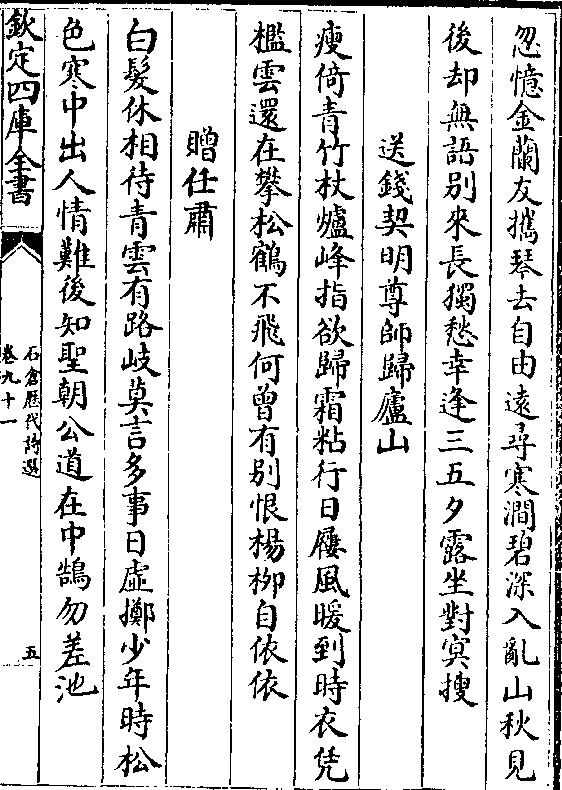 忽憶金蘭友攜琴去自由遠尋寒澗碧深入亂山秋見
後却無語别來長獨愁幸逢三五夕露坐對冥搜
送錢契明尊師歸廬山
瘦倚青竹杖爐峰指欲歸霜粘行日屨風暖到時衣凭
檻雲還在攀松鶴不飛何曾有别恨楊栁自依依
贈任肅
白髮休相待青雲有路岐莫言多事日虛擲少年時松
色寒中出人情難後知聖朝公道在中鵠勿差池
欽定四庫全書
石倉歷代詩選
卷九十一
五